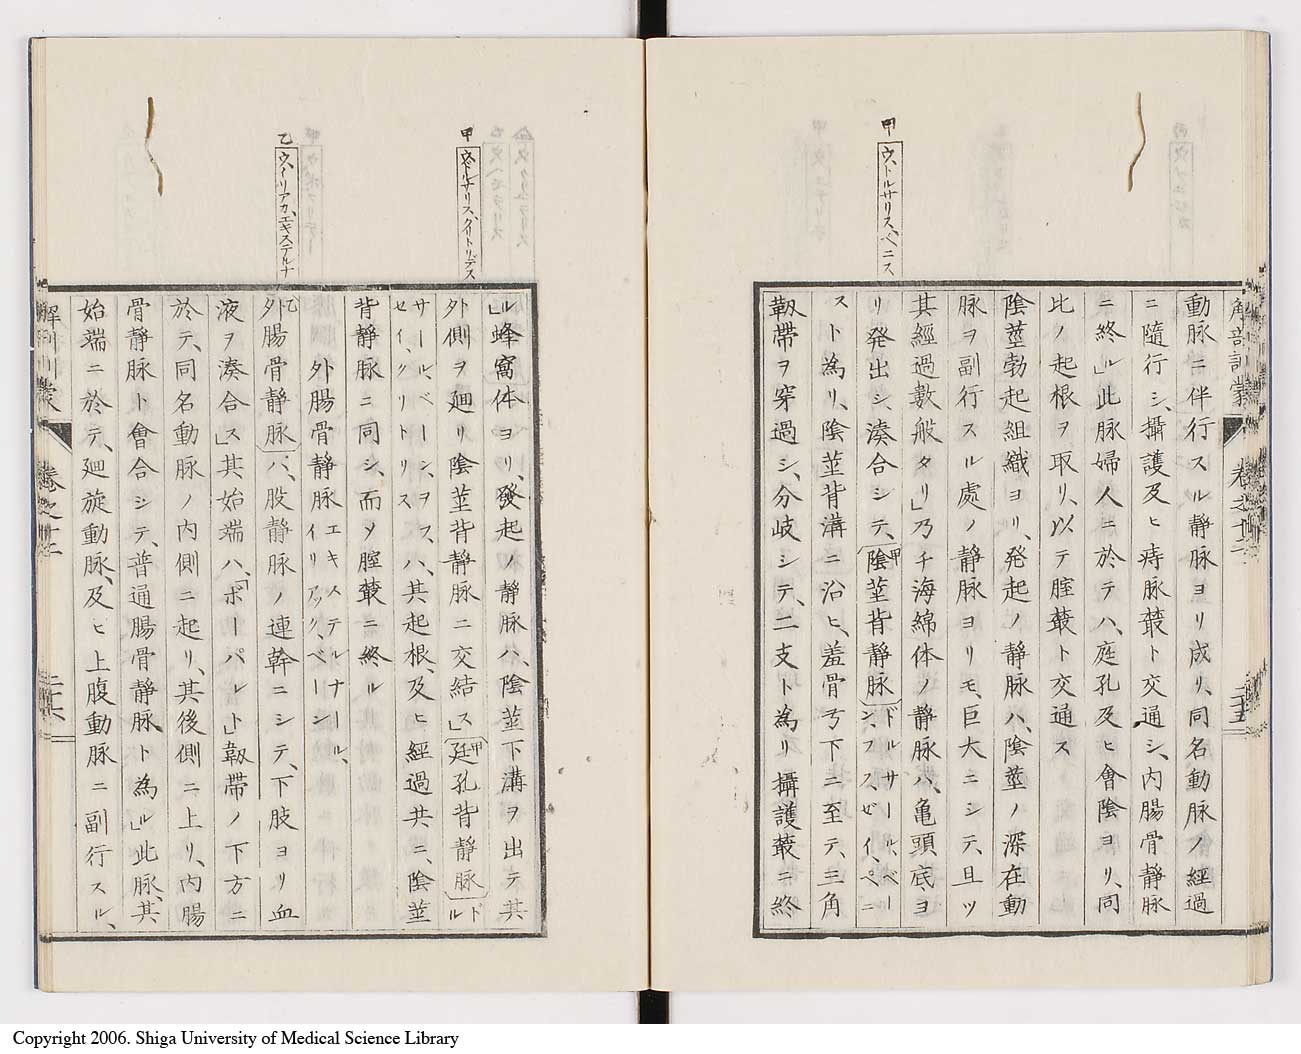 甲
ウ、ドルサリス、ペニス
解剖訓蒙
卷之十二
二十五
動脉ニ伴行スル靜脉ヨリ成リ、同名動脉ノ經過
ニ隨行シ、攝護及ヒ痔脉叢ト交通シ、内腸骨靜脉
ニ終ル」此脉婦人ニ於テハ、庭孔及ヒ會陰ヨリ、同
比ノ起根ヲ取リ、以テ腟叢ト交通ス
陰莖勃起組織ヨリ、発起ノ靜脉ハ、陰莖ノ深在動
脉ヲ副行スル處ノ靜脉ヨリモ、巨大ニシテ、且ツ
其經過數般タリ」乃チ海綿体ノ靜脉ハ、亀頭底ヨ
リ発出シ、湊合シテ、甲陰莖背靜脉ドルサール、ベーン、ヲフ、ゼイ、ペニ
スト為リ、陰莖背溝ニ沿ヒ、羞骨弓下ニ至テ、三角
靱帶ヲ穿過シ、分岐シテ、二支ト為リ攝護叢ニ終
甲
ウ、ドルサリス、クイトリデス
乙
ウ、イリアカ、エキステルナ
ル」蜂窩体ヨリ、發起ノ靜脉ハ、陰莖下溝ヲ出テ其
外側ヲ廻リ陰莖背靜脉ニ交結ス」甲廷孔背靜脉ドル
サール、ベーン、ヲフ、セイ、クリトリスハ、其起根、及ヒ經過共ニ、陰莖
背靜脉ニ同シ、而ソ腟叢ニ終ル
外腸骨靜脉エキステルナール、イリアック、ベーン
乙外腸骨靜脉ハ、股靜脉ノ連幹ニシテ、下肢ヨリ血
液ヲ湊合」ス其始端ハ、「ポーパルト」靱帶ノ下方ニ
於テ、同名動脉ノ内側ニ起リ、其後側ニ上リ、内腸
骨靜脉ト會合シテ、普通腸骨靜脉ト為ル」此脉、其
始端ニ於テ、廻旋動脉、及ヒ上腹動脉ニ副行スル、
卷之十二
二十六
Copyright 2006. Shiga University of Medical Science Library